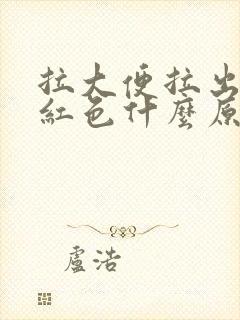 拉大便拉出
紅色什麼原
盧浩